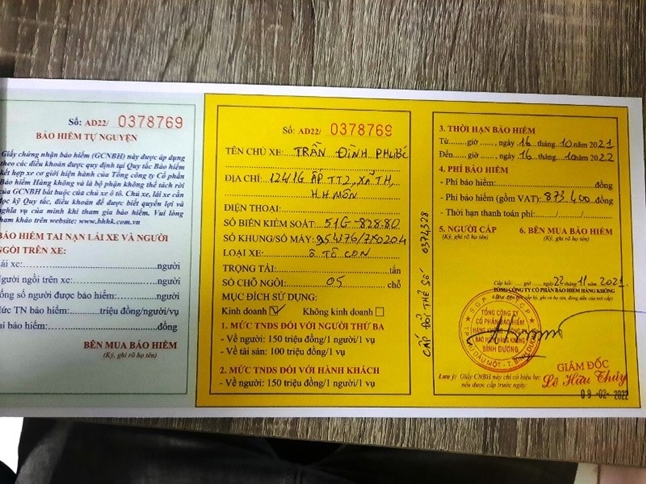 Số: AD22/ 0378769
BẢO HIỂM TỰ NGUYỆN
Giấy chứng nhận bảo hiểm (GCNBH) này được áp dụng
theo các điều khoản được quy định tại Quy tắc Bảo hiểm
kết hợp xe cơ giới hiện hành của Tổng công ty Cổ phần
Bảo hiểm Hàng không và là bộ phận không thể tách rời
của GCNBH bắt buộc của chủ xe ô tô. Chủ xe, lái xe cần
đọc kỹ Quy tắc, điều khoản để được biết quyền lợi và
nghĩa vụ của mình khi tham gia bảo hiểm. Vui lòng
tham khảo trên website: www.bhhk.com.vn
BẢO HIỂM TAI NẠN LÁI XE VÀ NGƯỜI
NGỒI TRÊN XE:
Lái xe: người
Người ngồi trên xe: người
Tổng số người được bảo hiểm: người
Mức TN bảo hiểm: triệu đồng/người/vụ
Phí bảo hiểm: đồng
BÊN MUA BẢO HIỂM
(Ký, ghi rõ họ tên)
Số: AD22/ 0378769
TÊN CHỦ XE: TRẦN ĐÌNH PHƯỚC
ĐỊA CHỈ: 124/1G ẤP TT2, XÃ TTH,
H.H MÔN
ĐIỆN THOẠI:
SỐ BIỂN KIỂM SOÁT: 51G-828.80
SỐ KHUNG/SỐ MÁY:
LOẠI XE: Ô TÔ CON
TRỌNG TẢI: tấn
SỐ CHỖ NGỒI: 05 chỗ
MỤC ĐÍCH SỬ DỤNG:
Kinh doanh Không kinh doanh
1. MỨC TNDS ĐỐI VỚI NGƯỜI THỨ BA
- Về người: 150 triệu đồng/1 người/1 vụ
- Về tài sản: 100 triệu đồng/1 vụ
2. MỨC TNDS ĐỐI VỚI HÀNH KHÁCH
- Về người: 150 triệu đồng/1 người/1 vụ
CẤP ĐỔI THẺ SỐ 0374328
3. THỜI HẠN BẢO HIỂM
Từ giờ, 16 tháng 10 năm 2021
Đến giờ, 16 tháng 10 năm 2022
4. PHÍ BẢO HIỂM
- Phí bảo hiểm: đồng
- Phí bảo hiểm (gồm VAT): 873.400 đồng
- Thời hạn thanh toán phí: / /
5. NGƯỜI CẤP 6. BÊN MUA BẢO HIỂM
(Ký, ghi rõ họ tên) (Ký, ghi rõ họ tên)
Cấp hồi: giờ, ngày 22 tháng 11 năm 2021
TỔNG CÔNG TY CỔ PHẦN BẢO HIỂM HÀNG KHÔNG
TỔNG CÔNG TY
CỔ PHẦN BẢO HIỂM
BÌNH DƯƠNG
GIÁM ĐỐC
Lê Hữu Thủy
09-02-2022
Lưu ý: Giấy CNBH này chỉ có hiệu lực
nếu được cấp trước ngày: